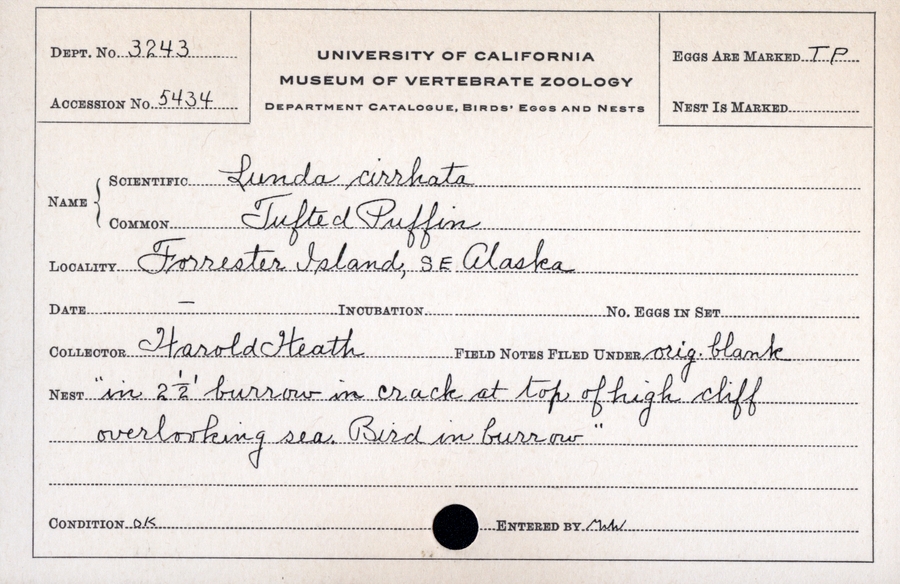 DEPT. No. 3243
ACCESSION No. 5434
UNIVERSITY OF CALIFORNIA
MUSEUM OF VERTEBRATE ZOOLOGY
DEPARTMENT CATALOGUE, BIRDS' EGGS AND NESTS
EGGS ARE MARKED TP
NEST IS MARKED
NAME
SCIENTIFIC Lunda cirrhata
COMMON Tufted Puffin
LOCALITY Forrester Island, SE Alaska
DATE — INCUBATION No. EGGS IN SET
COLLECTOR Harold Heath FIELD NOTES FILED UNDER orig. blank
NEST "in 2½' burrow in crack at top of high cliff
overlooking sea. Bird in burrow"
CONDITION OK ENTERED BY